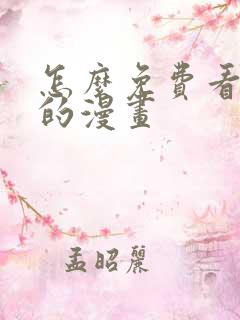 怎麼免費看
的漫畫
孟昭麗